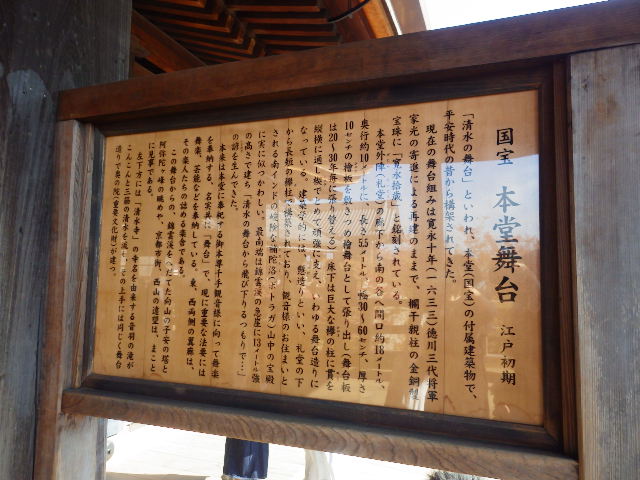 国宝 本堂舞台 江戸初期
「清水の舞台」といわれ、本堂(国宝)の付属建築物で、
平安時代の昔から構築されてきた。
現在の舞台組みは寛永十年(一六三三)徳川三代将軍
家光の寄進による再建のままで、欄干親柱の金銅製
宝珠に「寛永拾歳」と銘刻されている。
本堂外陣(礼堂)の廊下から南の谷へ間口約18メートル、
奥行約10メートルに、長さ5.5メートル、幅30〜60センチ、厚さ
10センチの檜板を敷きつめ檜舞台として張り出し(舞台板
は20〜30年毎に張り替える)、床下は巨大な欅の柱に貫を
縦横に通し楔でとめて頑強に支え、いわゆる舞台造りに
なっている。建築学的には、懸造りといい、礼堂の下
から長短の欅柱で構築されており、観音様のお住まいと
される南インドの峻険な補陀洛(ポトラガ)山中の宝殿
に実に似つかわしい。最南端は錦雲渓の急崖に13メートル強
の高さで建ち「清水の舞台から飛び下りるつもりで…」
の諺を生んできた。
本来は本堂に奉祀する御本尊千手観音様に向って舞楽
を奉納する、名実共に「舞台」で、現に重要な法要には
舞楽、芸能などを奉納している。東、西両側の翼廊は、
その楽人たちの詰める楽舎である。
この舞台からの、錦雲渓をへだてた向山の子安の塔と
阿弥陀ヶ峰の眺めや、京都市街、西山の遠望は、まこと
に見事である。
左下方には「清水寺」の寺名の由来する音羽の滝が
こんこんと三筋の清水を流し、その上手には同じく舞台
造りで奥の院(重要文化財)が建つ。